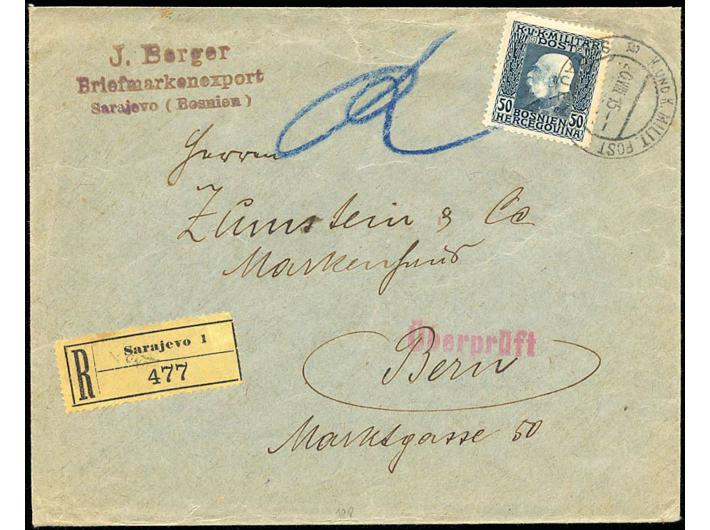 J. Berger
Briefmarkenexport
Sarajevo (Bosnien)
K.u.K. MILITÄR
POST
50 50
BOSNIEN
HERCEGOVINA
K. UND K. MILIT. POST
SARAJEVO
Herren
Zumstein & Co
Markenhaus
Überprüft
Bern
Marktgasse 50
R
Sarajevo 1
477